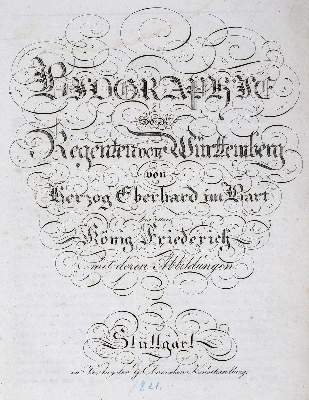 BIOGRAPHIE
der
Regenten von Württemberg
von
Herzog Eberhard im Bart
bis zum
König Friederich
mit deren Abbildungen
Stuttgart
im Verlag der G. Ebnerschen Kunsthandlung.
1821.